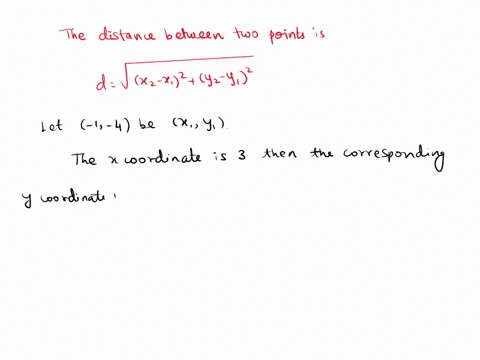 The distance between two points is
d = √(x₂-x₁)² + (y₂-y₁)²
Let (-1,-4) be (x₁, y₁).
The x coordinate is 3 then the corresponding
y coordinate